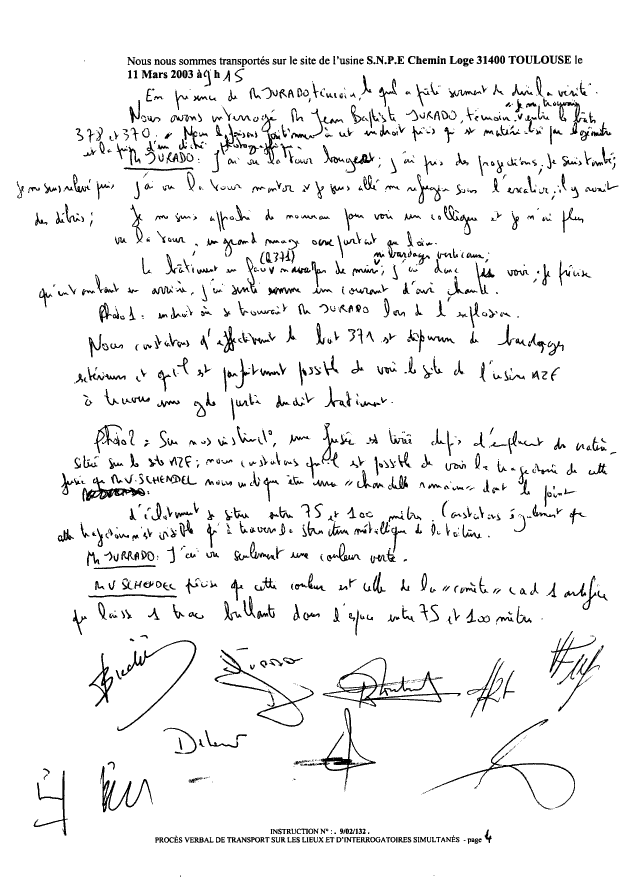 Nous nous sommes transportés sur le site de l'usine S.N.P.E Chemin Loge 31400 TOULOUSE le
11 Mars 2003 à 9h15
En présence de Mr JURADO, témoin, lequel a prêté serment de dire la vérité.
Nous avons interrogé Mr Jean Baptiste JURADO, témoin. "Je me trouvais entre les bâts
378 et 370. "Nous le faisons positionner à cet endroit précis qui est matérialisé par le géomètre
et la prise d'un cliché photographique.
Mr JURADO: J'ai vu la tour bouger; j'ai pris des projections, Je suis tombé;
je me suis relevé puis j'ai vu la tour monter et je suis allé me réfugier sous l'escalier, il y avait
des débris; Je me suis approché de nouveau pour voir un collègue et je n'ai plus
vu la tour, un grand nuage au loin.
Le bâtiment en face (B371) n'avait pas de murs, ni bardages verticaux; j'ai donc pu voir. Je précise
qu'en tombant en arrière, j'ai senti comme un courant d'air chaud.
Photo 1: endroit où se trouvait Mr JURADO lors de l'explosion.
Nous constatons qu'effectivement le bat 371 est dépourvu de bardages
extérieurs et qu'il est parfaitement possible de voir le site de l'usine AZF
à travers une gde partie dudit bâtiment.
Photo 2 = Sur nos instruct°, une fusée est tirée depuis l'emplact du cratère
situé sur le site AZF; nous constatons qu'il est possible de voir la trajectoire de cette
fusée que Mr V. SCHENDEL nous indique être une "chandelle romaine" dont le point
d'éclatement se situe entre 75 et 100 mètres. Constatons également que
cette trajectoire n'est visible qu'à travers la structure métallique de la toiture.
Mr JURRADO: J'ai vu seulement une couleur verte.
Mr V SCHENDEL précise que cette couleur est celle de la "comète" cad 1 artifice
qui laisse 1 trace brillante dans l'espace entre 75 et 100 mètres.
JURADO
INSTRUCTION N° : . 9/02/132 .
PROCÈS VERBAL DE TRANSPORT SUR LES LIEUX ET D'INTERROGATOIRES SIMULTANÉS - page 4